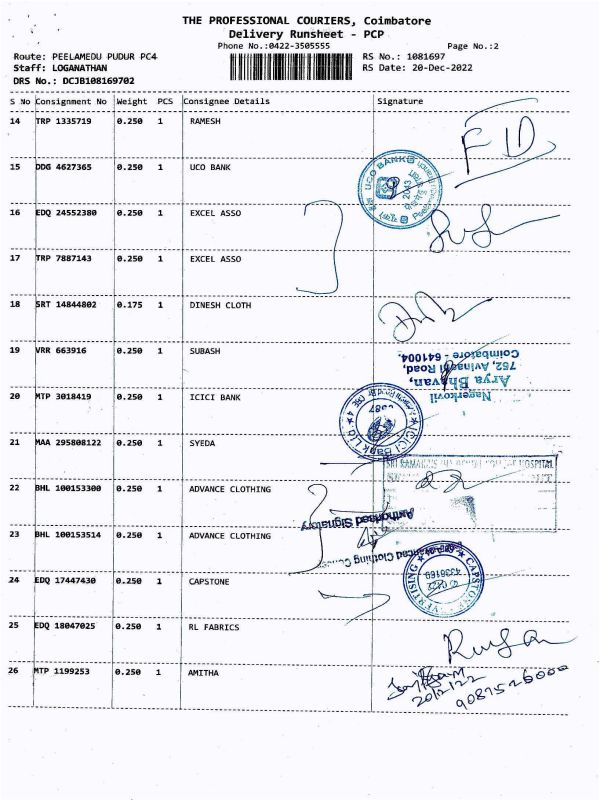 THE PROFESSIONAL COURIERS, Coimbatore
Delivery Runsheet - PCP
Phone No.:0422-3505555 Page No.:2
Route: PEELAMEDU PUDUR PC4 RS No.: 1081697
Staff: LOGANATHAN RS Date: 20-Dec-2022
DRS No.: DCJB108169702
S No Consignment No Weight PCS Consignee Details Signature
14 TRP 1335719 0.250 1 RAMESH
15 DDG 4627365 0.250 1 UCO BANK
UCO BANK
16 EDQ 24552380 0.250 1 EXCEL ASSO
17 TRP 7887143 0.250 1 EXCEL ASSO
18 SRT 14844802 0.175 1 DINESH CLOTH
19 VRR 663916 0.250 1 SUBASH
Nagerkovil
Arya Bhavan,
752, Avinashi Road,
Coimbatore - 641004.
20 MTP 3018419 0.250 1 ICICI BANK
ICICI Bank Ltd
21 MAA 295808122 0.250 1 SYEDA
HOSPITAL
22 BHL 100153300 0.250 1 ADVANCE CLOTHING
Authorised Signatory
23 BHL 100153514 0.250 1 ADVANCE CLOTHING
Clothing
24 EDQ 17447430 0.250 1 CAPSTONE
CAPSTONE
25 EDQ 18047025 0.250 1 RL FABRICS
26 MTP 1199253 0.250 1 AMITHA
20/12/22
9087526000